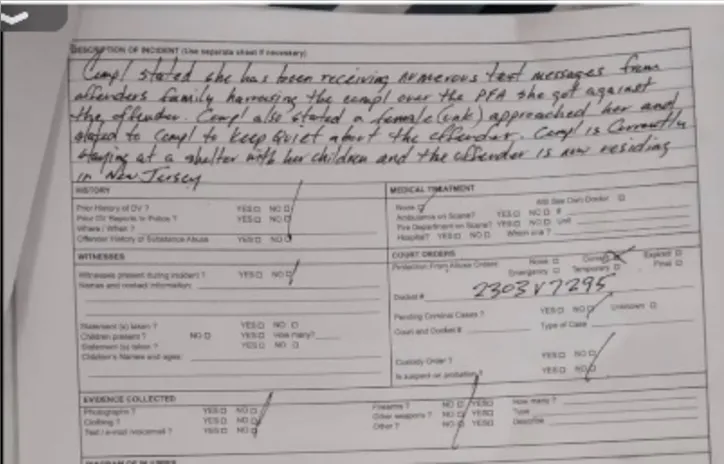 DESCRIPTION OF INCIDENT (Use separate sheet if necessary)
Compl stated she has been receiving numerous text messages from
offenders family harrassing the compl over the PFA she got against
the offender. Compl also stated a female (unk) approached her and
stated to Compl to keep quiet about the offender. Compl is Currently
staying at a shelter with her children and the offender is now residing
in New Jersey
HISTORY
Prior History of DV ? YES NO
Prior DV Reports to Police ? YES NO
Where / When ?
Offender History of Substance Abuse YES NO
MEDICAL TREATMENT
None Will See Own Doctor
Ambulance on Scene? YES NO #
Fire Department on Scene? YES NO Unit
Hospital? YES NO Which one ?
WITNESSES
Witnesses present during incident ? YES NO
Names and contact information:
Statement (s) taken ? YES NO
Children present ? NO YES How many?
Statement (s) taken ? YES NO
Children's Names and ages:
COURT ORDERS
Protection From Abuse Orders None Current Expired
Emergency Temporary Final
Docket # 2303V7295
Pending Criminal Cases ? YES NO Unknown
Court and Docket # Type of Case
Custody Order ? YES NO
Is suspect on probation? YES NO
EVIDENCE COLLECTED
Photographs ? YES NO
Clothing ? YES NO
Text / e-mail /voicemail ? YES NO
Firearms ? NO YES How many ?
Other weapons ? NO YES Type
Other ? NO YES Describe